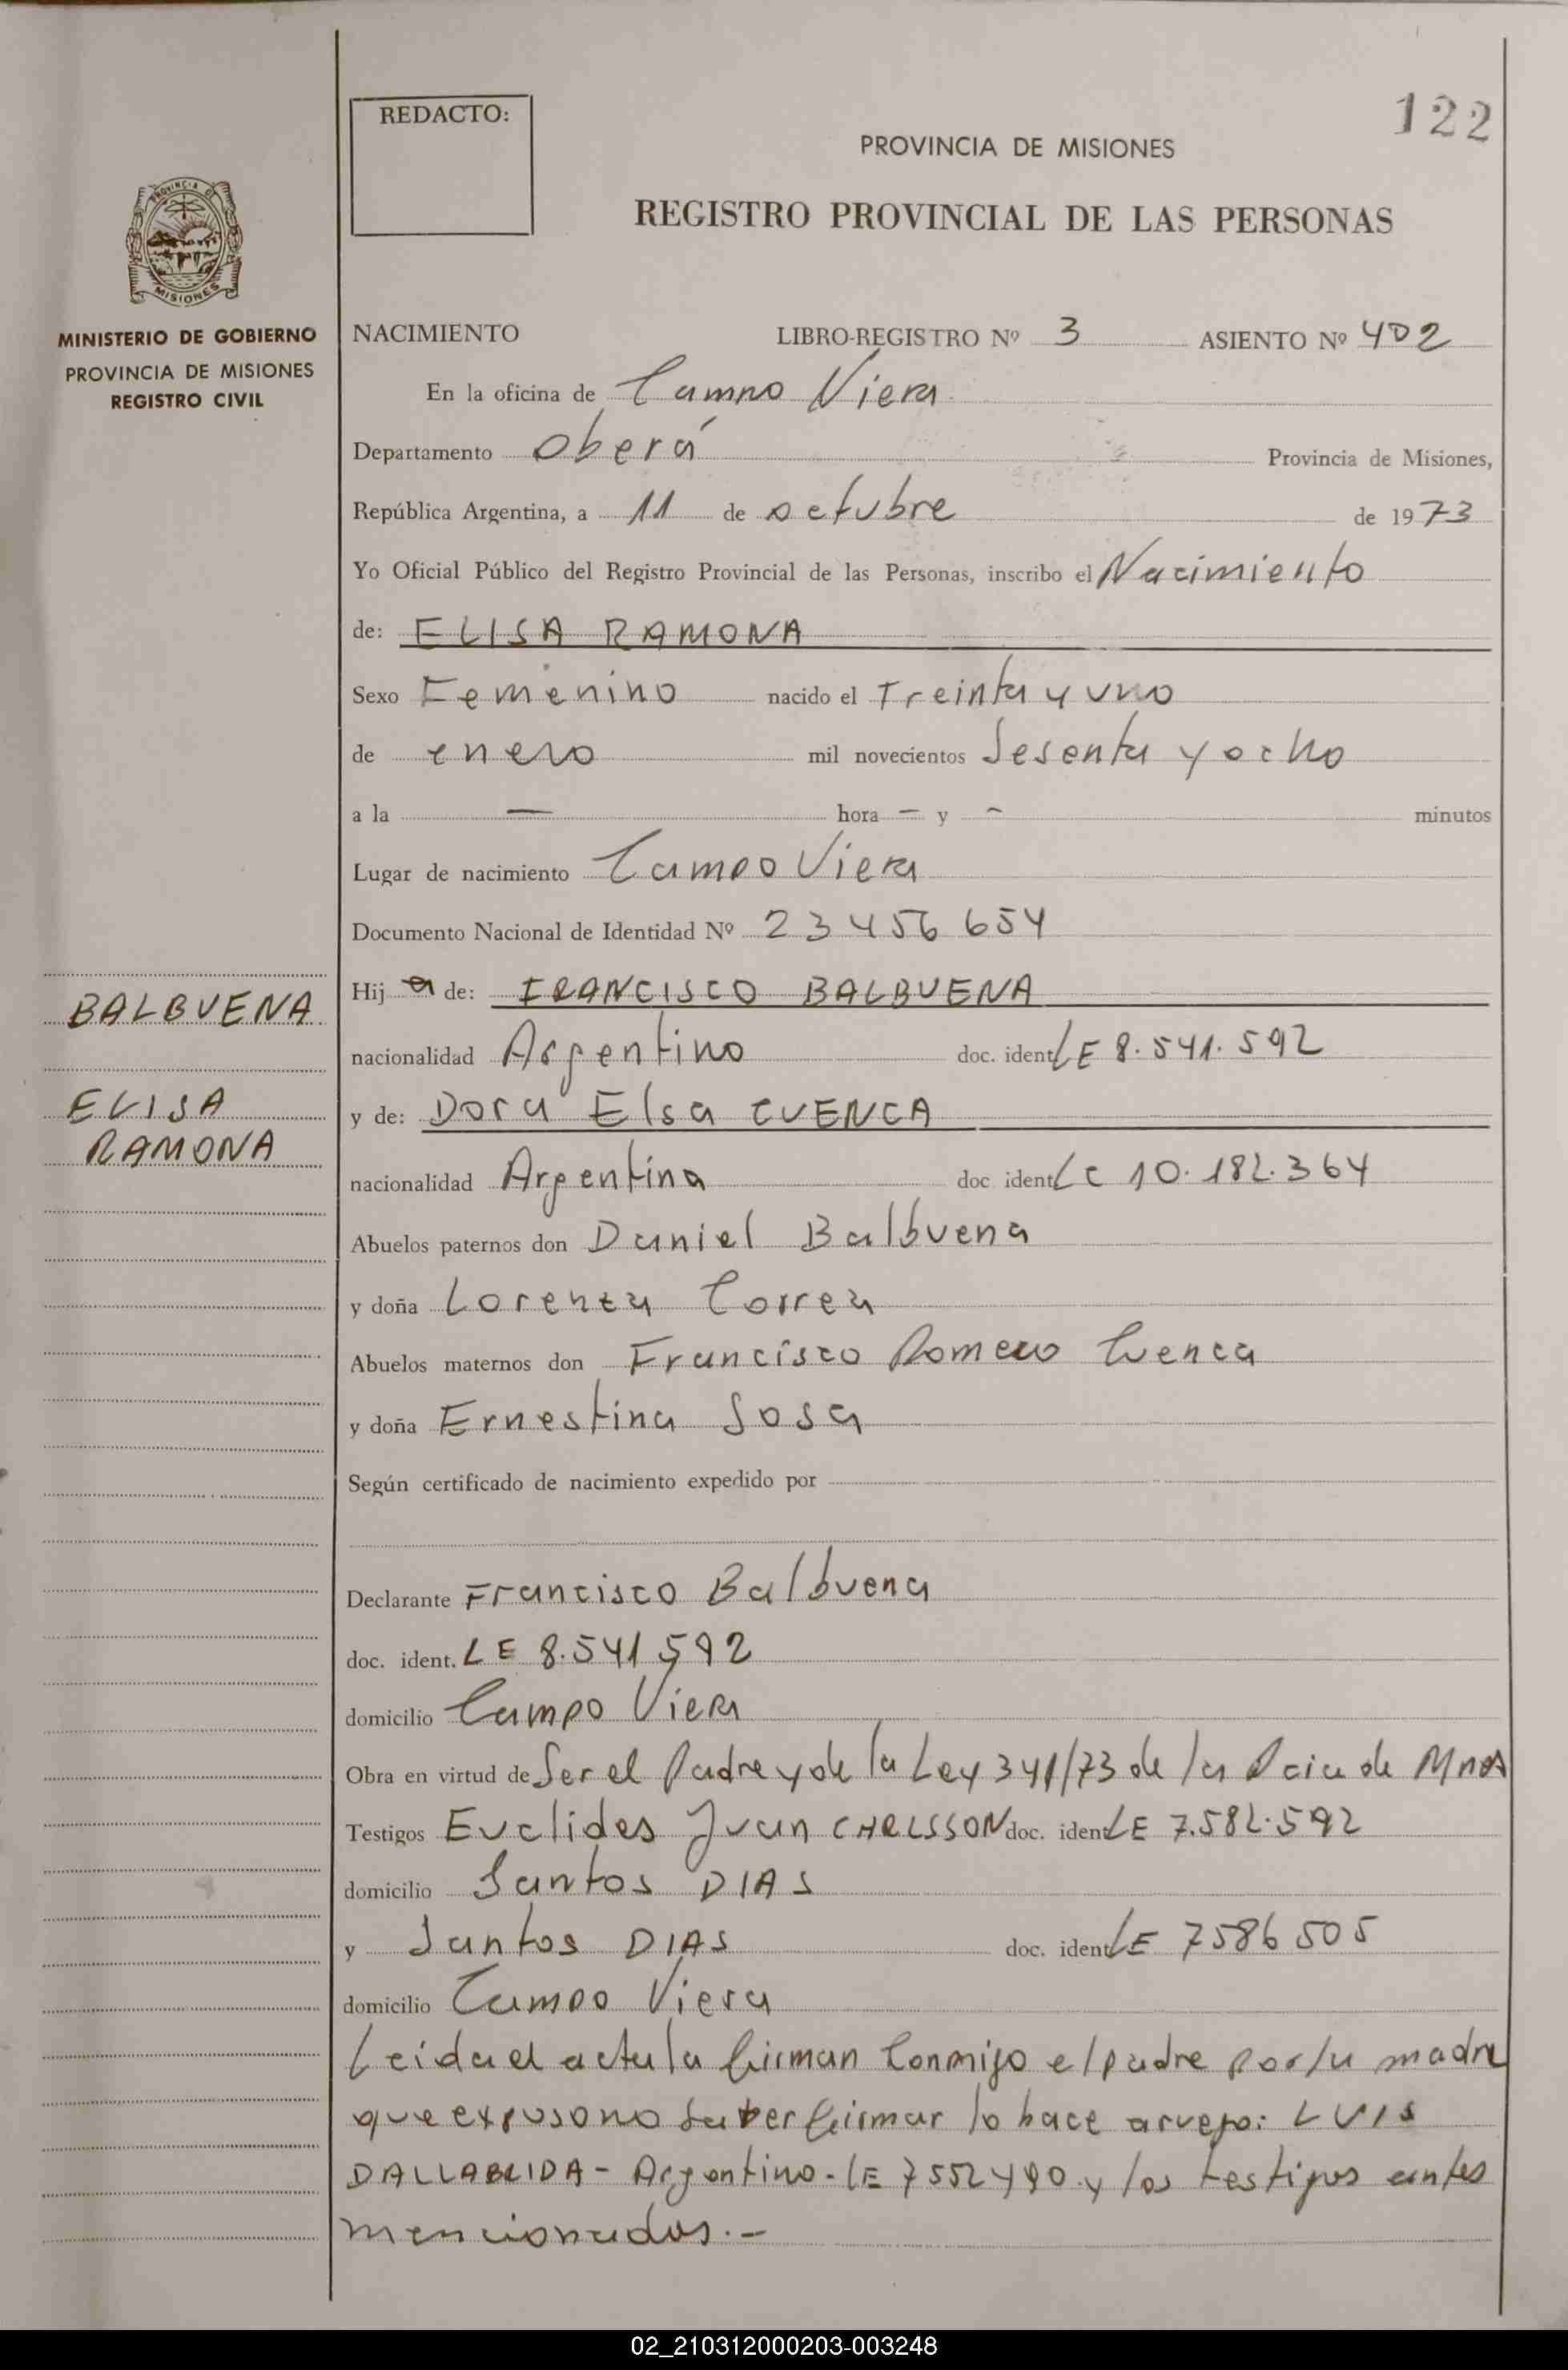 122
REDACTO:
PROVINCIA DE MISIONES
REGISTRO PROVINCIAL DE LAS PERSONAS
PROVINCIA DE
MISIONES
MINISTERIO DE GOBIERNO
PROVINCIA DE MISIONES
REGISTRO CIVIL
NACIMIENTO LIBRO-REGISTRO Nº 3 ASIENTO Nº 402
En la oficina de Campo Viera
Departamento Oberá Provincia de Misiones,
República Argentina, a 11 de octubre de 1973
Yo Oficial Público del Registro Provincial de las Personas, inscribo el Nacimiento
de: ELISA RAMONA
Sexo Femenino nacido el Treinta y uno
de enero mil novecientos Sesenta y ocho
a la — hora – y – minutos
Lugar de nacimiento Campo Viera
Documento Nacional de Identidad Nº 23456654
Hij a de: FRANCISCO BALBUENA
BALBUENA
nacionalidad Argentino doc. ident LE 8.541.592
y de: Dora Elsa CUENCA
ELISA
RAMONA
nacionalidad Argentina doc ident LC 10.182.364
Abuelos paternos don Daniel Balbuena
y doña Lorenza Correa
Abuelos maternos don Francisco Romero Cuenca
y doña Ernestina Sosa
Según certificado de nacimiento expedido por
Declarante Francisco Balbuena
doc. ident. LE 8.541592
domicilio Campo Viera
Obra en virtud de Ser el Padre y de la Ley 341/73 de la Pcia de Mnes
Testigos Euclides Juan doc. ident LE 7.582.592
domicilio Santos DIAS
y Santos DIAS doc. ident LE 7586505
domicilio Campo Viera
Leida el acta la firman Conmigo el padre por la madre
que expuso no saber firmar lo hace a ruego: LUIS
DALLABRIDA - Argentino - LE 7552490 y los testigos antes
mencionados.-
02_210312000203-003248